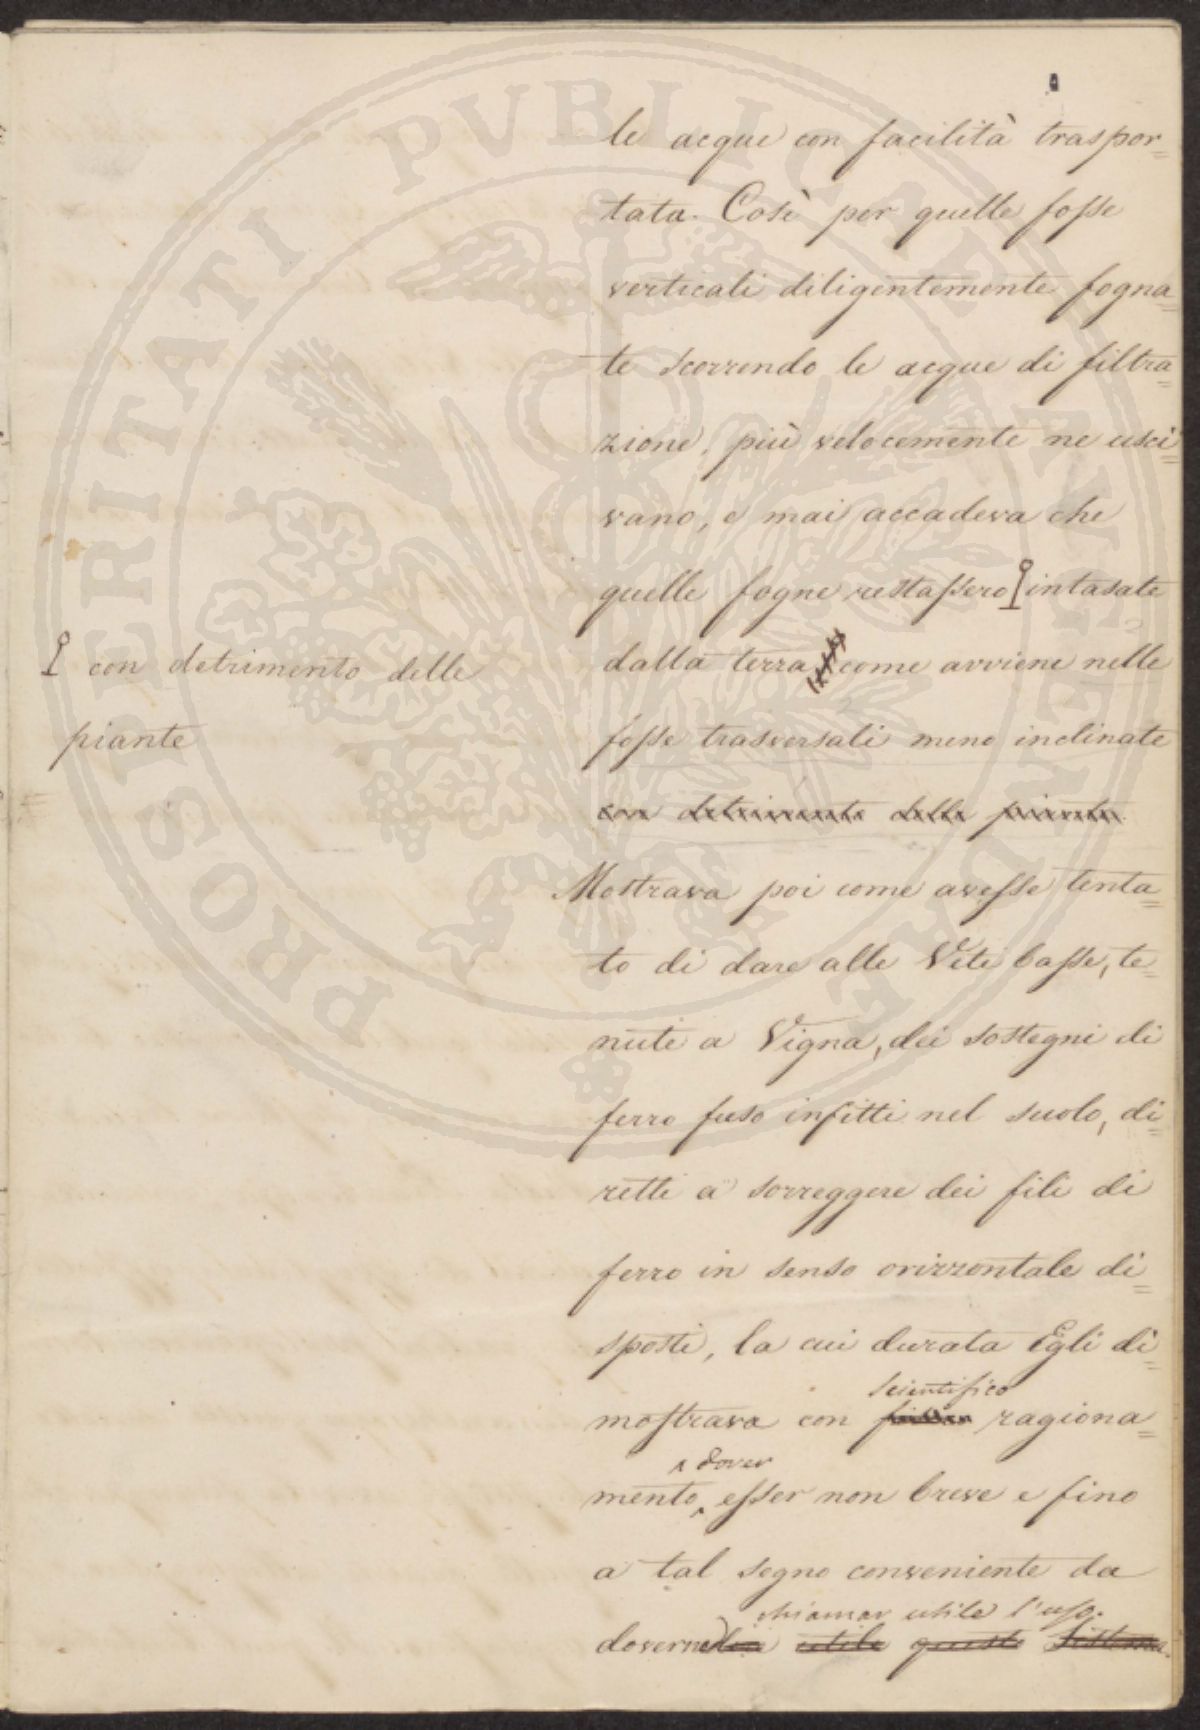 le acque con facilità traspor=
tata. Così per quelle fosse
verticali diligentemente fogna=
te scorrendo le acque di filtra=
zione, più velocemente ne usci=
vano, e mai accadeva che
quelle fogne restassero intasate
dalla terra come avviene nelle
fosse trasversali meno inclinate
con detrimento delle piante.
con detrimento delle
piante
Mostrava poi come avesse tenta=
to di dare alle Viti basse, te=
nute a Vigna, dei sostegni di
ferro fuso infitti nel suolo, di=
retti a sorreggere dei fili di
ferro in senso orizzontale di=
sposti, la cui durata Egli di=
scientifico
mostrava con ragiona=
dover
mento esser non breve e fino
a tal segno conveniente da
chiamar utile l'uso.
doverne utile questo sistema.
PROSPERITATI PVBLICAE AVGENDAE